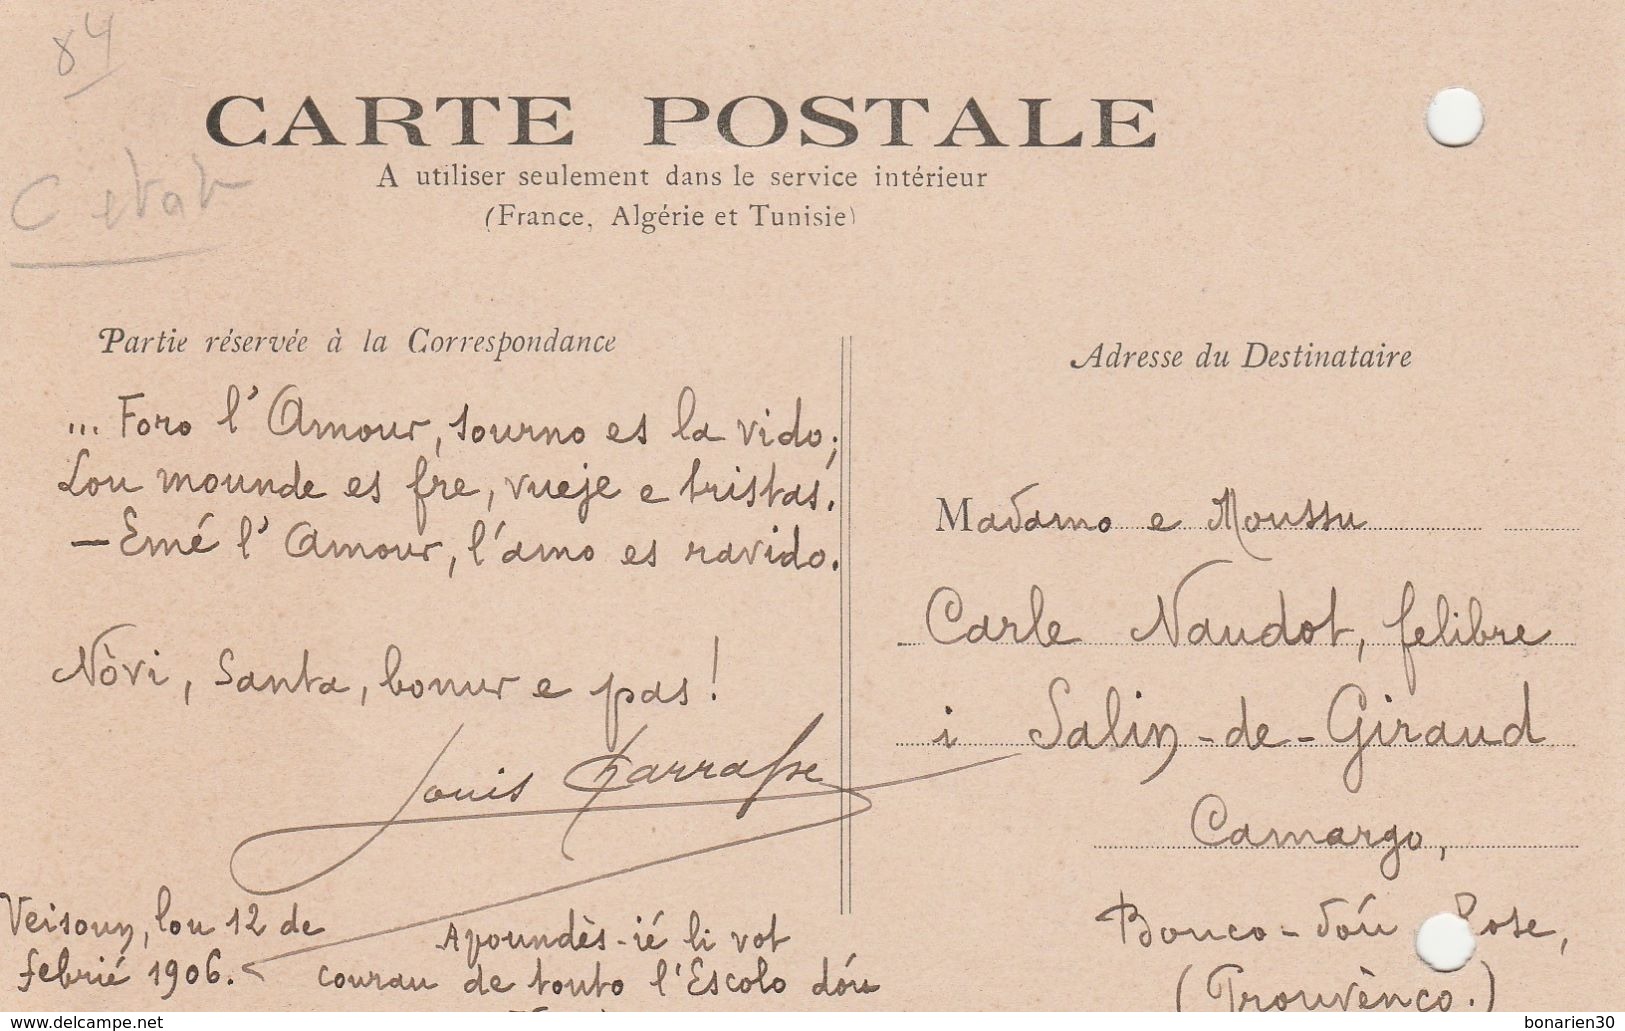 84
C etat
CARTE POSTALE
A utiliser seulement dans le service intérieur
(France, Algérie et Tunisie)
Partie réservée à la Correspondance
... Foro l'Amour, sourno es la vido;
Lou mounde es fre, vueje e tristas.
— Emé l'Amour, l'amo es ravido.
Nòvi, Santa, bonur e pas!
Louis Charrasse
Veisoun, lou 12 de
febrié 1906.
Apoundès-ié li vot
courau de touto l'Escolo dóu
Adresse du Destinataire
Madamo e Moussu
Carle Naudot, felibre
i Salin-de-Giraud
Camargo,
Bouco-dóu Rose,
(Prouvènço.)
bonarien30